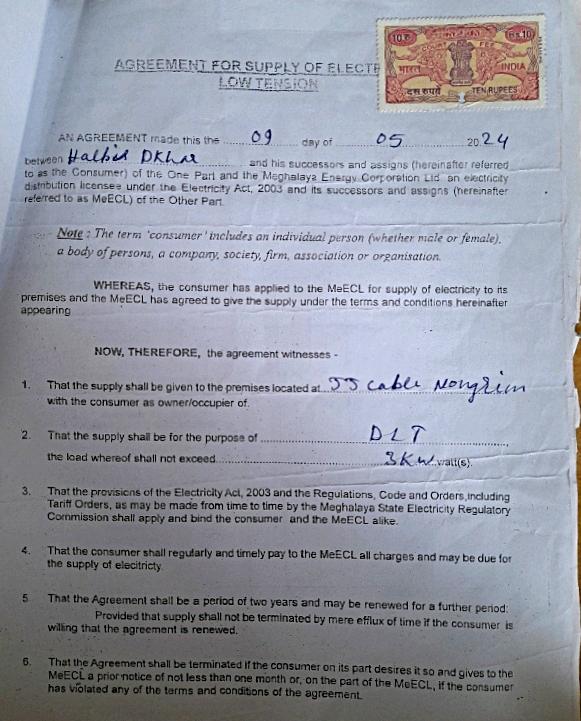 AGREEMENT FOR SUPPLY OF ELECTR
LOW TENSION
10 रु
Rs 10
COURT FEE
भारत
INDIA
दस रुपये
TEN RUPEES
AN AGREEMENT made this the ........09........ day of .......05....... 2024
between Halbid Dkhar ........ and his successors and assigns (hereinafter referred
to as the Consumer) of the One Part and the Meghalaya Energy Corporation Ltd. an electricity
distribution licensee under the Electricity Act, 2003 and its successors and assigns (hereinafter
referred to as MeECL) of the Other Part.
Note : The term 'consumer' includes an individual person (whether male or female),
a body of persons, a company, society, firm, association or organisation.
WHEREAS, the consumer has applied to the MeECL for supply of electricity to its
premises and the MeECL has agreed to give the supply under the terms and conditions hereinafter
appearing
NOW, THEREFORE, the agreement witnesses -
1. That the supply shall be given to the premises located at JJ cable Nongrim
with the consumer as owner/occupier of.
2. That the supply shall be for the purpose of ........ DLT ........
the load whereof shall not exceed........ 3KW watt(s).
3. That the provisions of the Electricity Act, 2003 and the Regulations, Code and Orders, including
Tariff Orders, as may be made from time to time by the Meghalaya State Electricity Regulatory
Commission shall apply and bind the consumer and the MeECL alike.
4. That the consumer shall regularly and timely pay to the MeECL all charges and may be due for
the supply of elecitricty.
5 That the Agreement shall be a period of two years and may be renewed for a further period:
Provided that supply shall not be terminated by mere efflux of time if the consumer is
willing that the agreement is renewed.
6. That the Agreement shall be terminated if the consumer on its part desires it so and gives to the
MeECL a prior notice of not less than one month or, on the part of the MeECL, if the consumer
has violated any of the terms and conditions of the agreement.